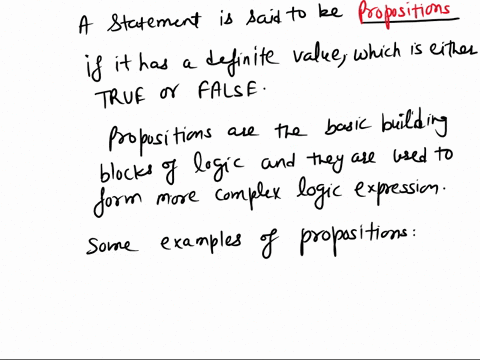 A Statement is said to be Propositions
if it has a definite value, which is either
TRUE or FALSE.
Propositions are the basic building
blocks of logic and they are used to
form more complex logic expression.
Some examples of propositions: